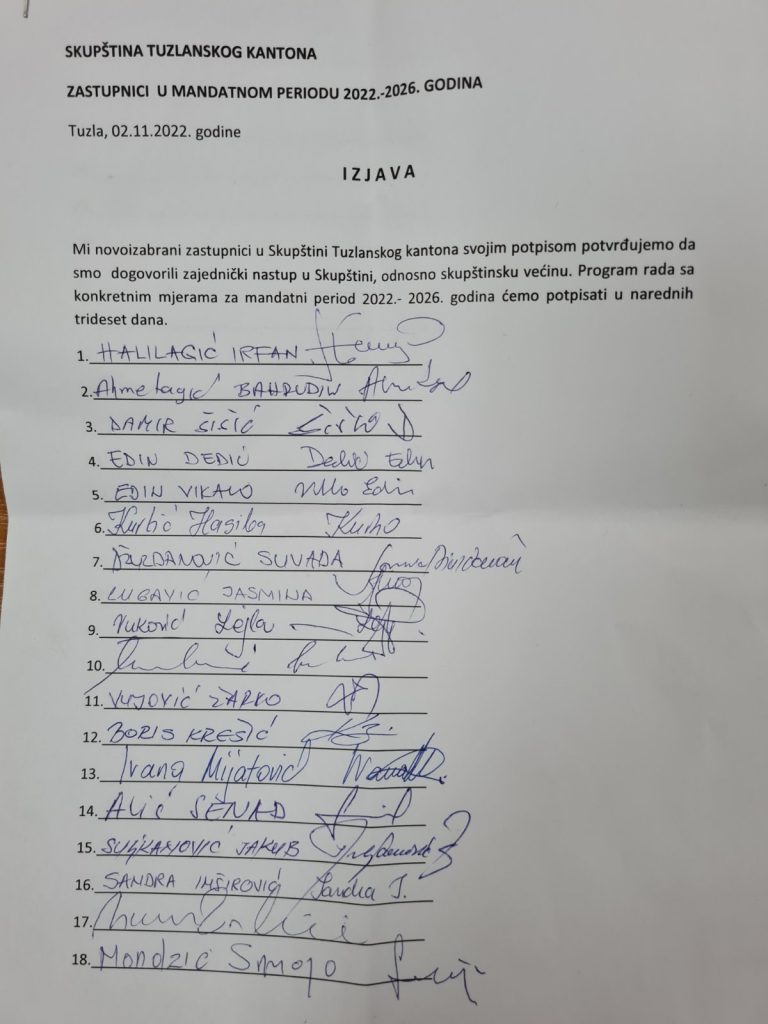 SKUPŠTINA TUZLANSKOG KANTONA
ZASTUPNICI U MANDATNOM PERIODU 2022.-2026. GODINA
Tuzla, 02.11.2022. godine
IZJAVA
Mi novoizabrani zastupnici u Skupštini Tuzlanskog kantona svojim potpisom potvrđujemo da
smo dogovorili zajednički nastup u Skupštini, odnosno skupštinsku većinu. Program rada sa
konkretnim mjerama za mandatni period 2022.- 2026. godina ćemo potpisati u narednih
trideset dana.
1. HALILAGIĆ IRFAN
2. Ahmetagić BAHRUDIN
3. DAMIR ŠIŠIĆ
4. EDIN DEDIĆ Dedić Edin
5. EDIN VIKALO Edin
6. Kurtić Hasiba
7. SUVADA
8. JASMINA
9. Vuković Lejla
10.
11. VUJOVIĆ ŽARKO
12. BORIS KREŠIĆ
13. Ivana Mijatović
14. ALIĆ SENAD
15. SULJKANOVIĆ JAKUB
16. SANDRA IMŠIROVIĆ Sandra I.
17.
18. Mondzić